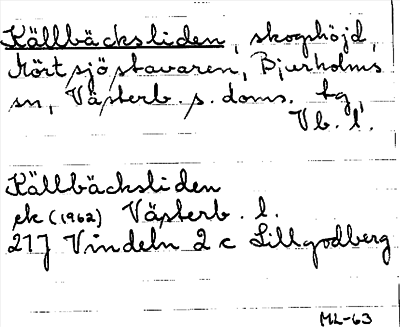 Källbäcksliden, skogshöjd,
Mörtsjöstavaren, Bjurholms
sn, Västerb. s. doms. tg,
Vb. l.
Källbäcksliden
ek (1962) Västerb. l.
21J Vindeln 2 c Lillgodberg
ML-63